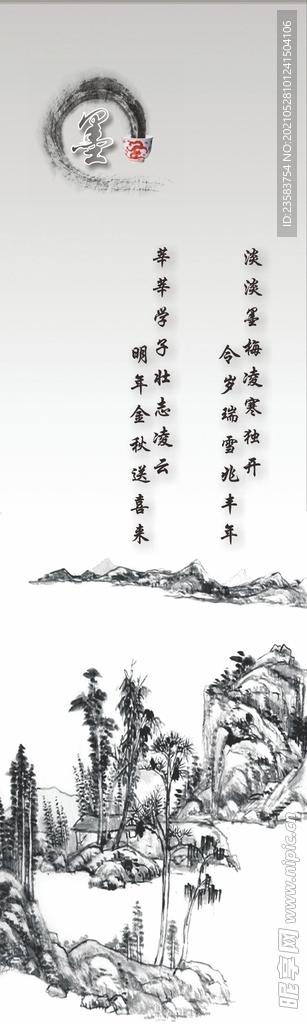 墨
淡淡墨梅凌寒独开
令岁瑞雪兆丰年
莘莘学子壮志凌云
明年金秋送喜来
ID:23583754 NO:20210528101241504106
昵享网 www.nipic.cn